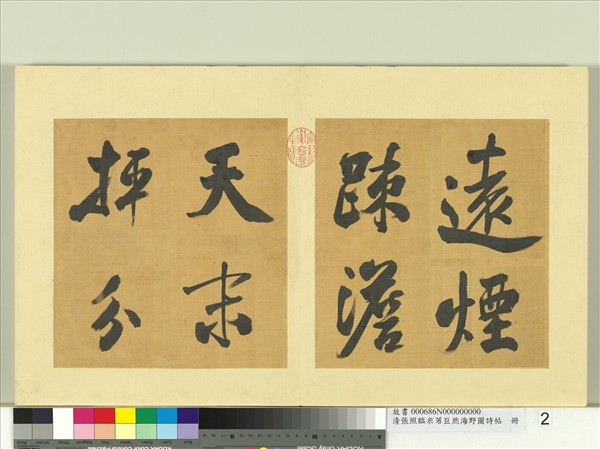 遠煙
踈澹
天末
抨分
故書 000686N000000000
清張照臨米芾巨然海野圖詩帖 冊
2